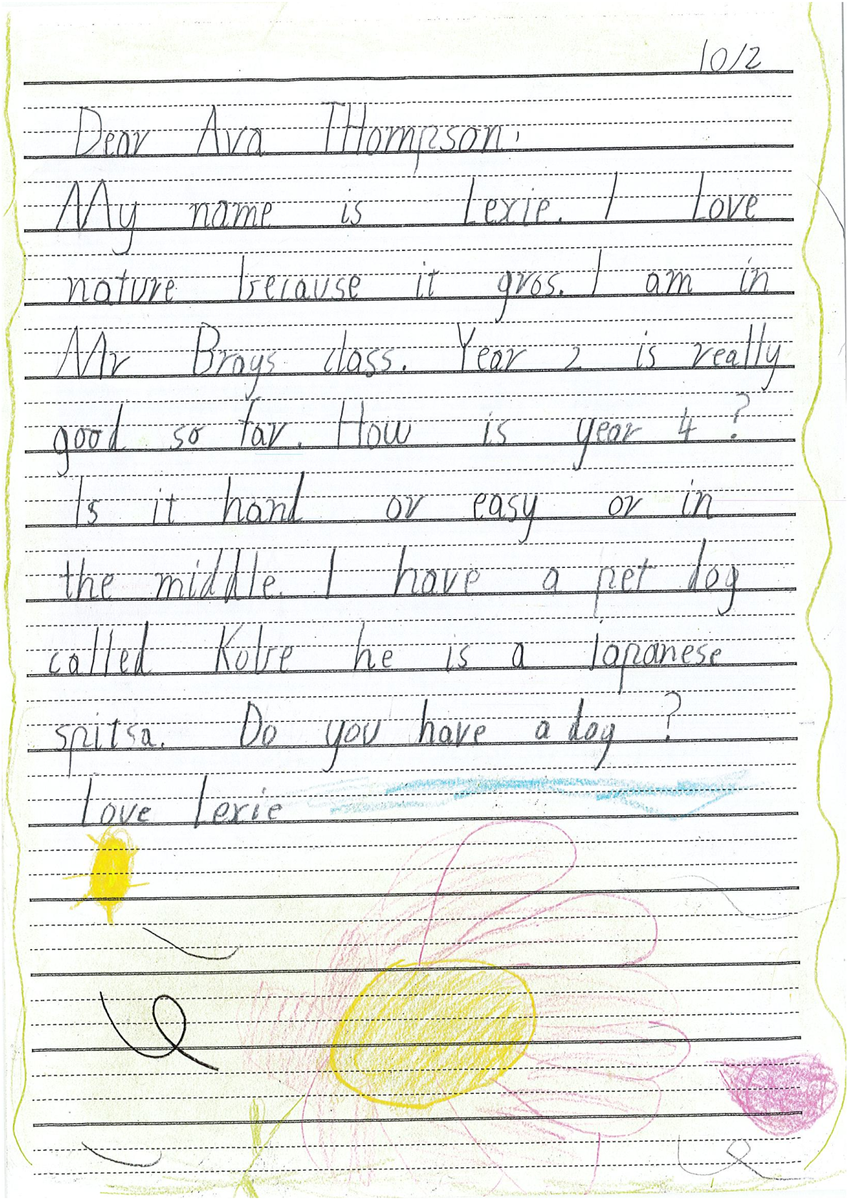 10/2
Dear Ava THompson,
My name is Lexie. I love
nature because it gros. I am in
Mr Brays class. Year 2 is really
good so far. How is year 4?
Is it hard or easy or in
the middle. I have a pet dog
called Kobe he is a japanese
spitsa. Do you have a dog?
love lexie